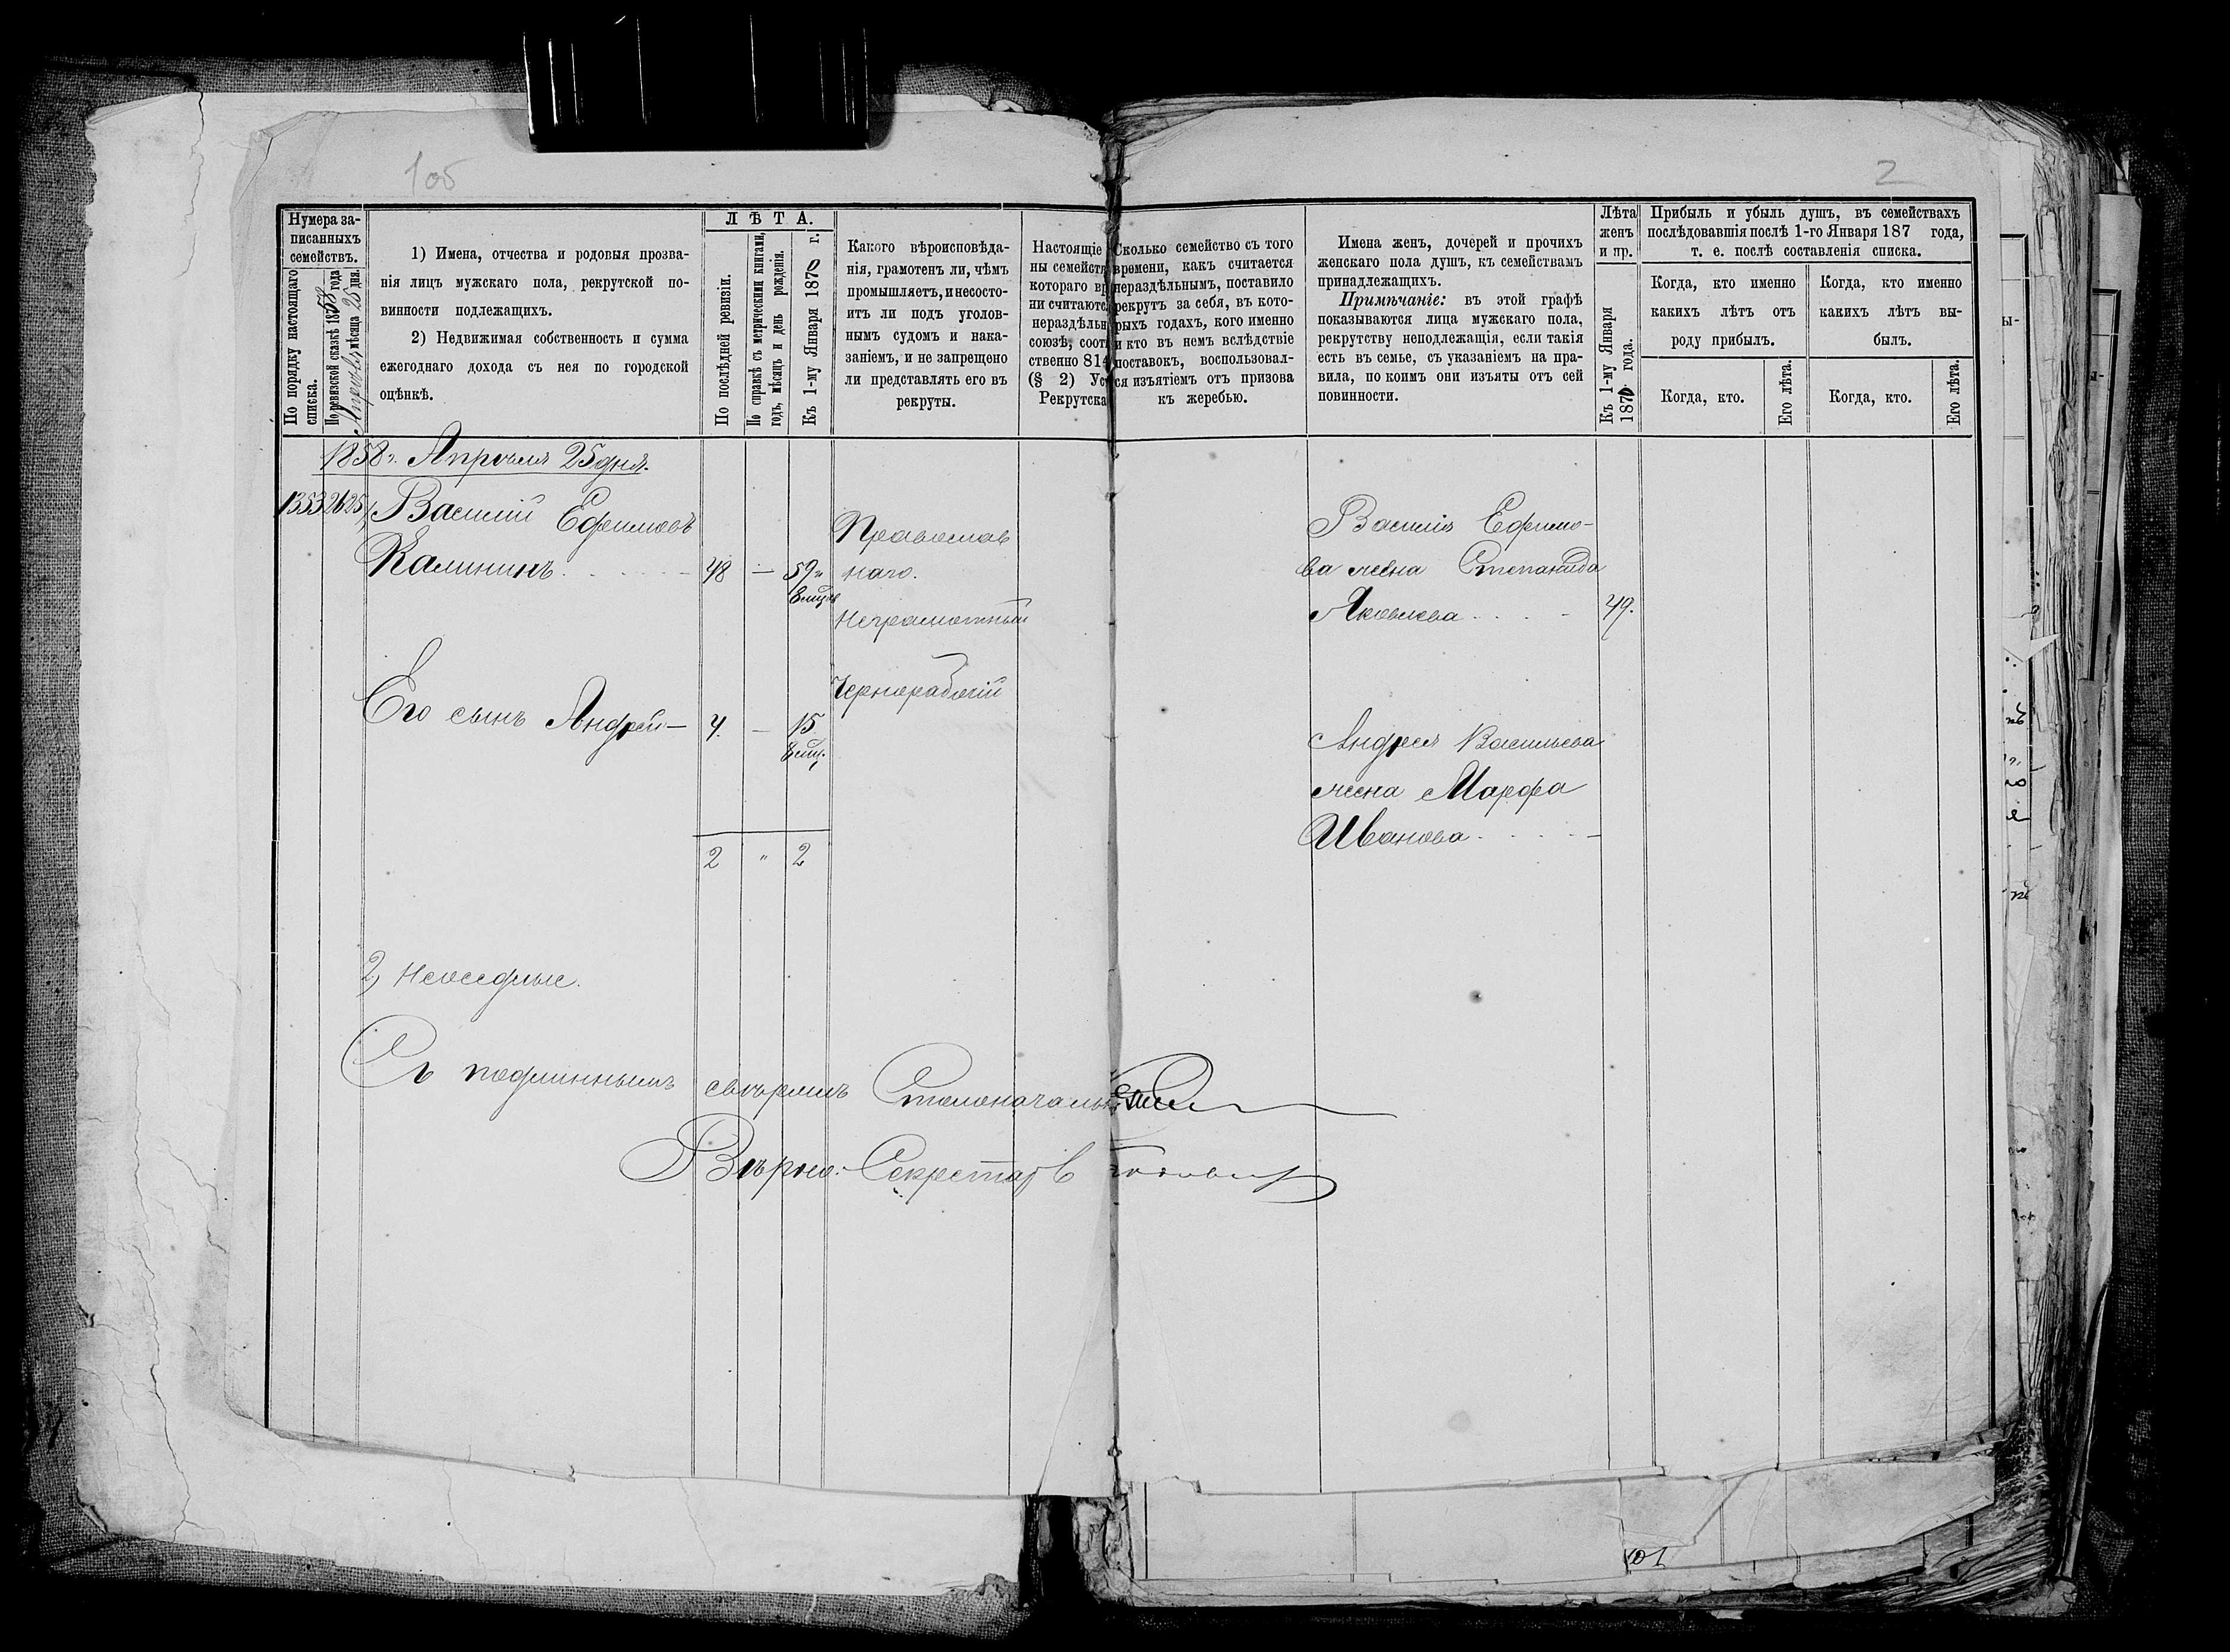 105
2
Нумера за-
писанныхъ
семействъ.
По порядку настоящаго
списка.
По ревизской сказкѣ 1858 года
Апрѣля мѣсяца 25 дня.
1) Имена, отчества и родовыя прозва-
нія лицъ мужскаго пола, рекрутской по-
винности подлежащихъ.
2) Недвижимая собственность и сумма
ежегоднаго дохода съ нея по городской
оцѣнкѣ.
ЛѢТА.
По послѣдней ревизіи.
По справкѣ съ метрическими книгами,
годъ, мѣсяцъ и день рожденія.
Къ 1-му Января 1870 г.
Какого вѣроисповѣда-
нія, грамотенъ ли, чѣмъ
промышляетъ, и несосто-
итъ ли подъ уголов-
нымъ судомъ и нака-
заніемъ, и не запрещено
ли представлять его въ
рекруты.
Настоящіе
ны семейств
котораго вр
ни считаютс
нераздѣльн
союзѣ, соот
ственно 814
(§ 2) Ус
Рекрутска
Сколько семейство съ того
времени, какъ считается
нераздѣльнымъ, поставило
рекрутъ за себя, въ кото-
рыхъ годахъ, кого именно
и кто въ немъ вслѣдствіе
поставокъ, воспользовал-
ся изъятіемъ отъ призова
къ жеребью.
Имена женъ, дочерей и прочихъ
женскаго пола душъ, къ семействамъ
принадлежащихъ.
Примѣчаніе: въ этой графѣ
показываются лица мужскаго пола,
рекрутству неподлежащія, если такія
есть въ семьѣ, съ указаніемъ на пра-
вила, по коимъ они изъяты отъ сей
повинности.
Лѣта
женъ
и пр.
Къ 1-му Января
1870 года.
Прибыль и убыль душъ, въ семействахъ
послѣдовавшія послѣ 1-го Января 187 года,
т. е. послѣ составленія списка.
Когда, кто именно
какихъ лѣтъ отъ
роду прибылъ.
Когда, кто именно
какихъ лѣтъ вы-
былъ.
Когда, кто.
Его лѣта.
Когда, кто.
Его лѣта.
1858 г. Апрѣля 25 дня.
1353 2625 1) Василій Ефимовъ
Калининъ 48 — 59
Православ
наго.
Неграмотный
Чернорабочій
Василія Ефимо-
ва жена Степанида
Яковлева 49.
Его сынъ Андрей — 4. — 15
Андрея Васильева
жена Марфа
Иванова
2 " 2
2)
Съ подлиннымъ свѣрялъ Столоначальн
Вѣрно: Секретарь
101